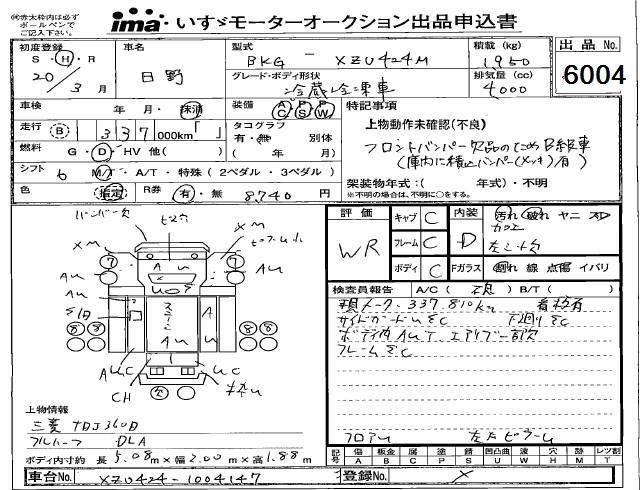 ㊟赤太枠内は必ず
ボールペンで
ご記入下さい。
ima いすゞモーターオークション出品申込書
初度登録 S・H・R 20年 3月
車名 日野
型式 BKG - XZU424M
積載(kg) 1950
出品No. 6004
グレード・ボディ形状 冷蔵冷凍車
排気量(cc) 4000
車検 年・月・抹消
装備 AC PS PW
特記事項
上物動作未確認(不良)
走行 B 337,000km「 」
タコグラフ 有・無 別体 ( 年 月)
フロントバンパー欠品のためB級車
(庫内に積込バンパー(メッキ)有)
燃料 G・D・HV 他( )
シフト 6 M/T・A/T・特殊(2ペダル・3ペダル)
架装物年式:( 年式)・不明
※不明の場合は、不明に○をする。
色 指定 R券 有・無 8740円
評価 WR
キャブ C
フレーム C
ボディ C
内装 D
汚れ 破れ ヤニ スレ
Fガラス 割れ 線 点傷 イバリ
検査員報告 A/C( 不良 ) B/T( )
337.810km
サイドガードUEC 下廻りEC
フレームEC
フロアU
バンパー欠
XM
XM
AU
AU
AUC
UC
CH
上物情報
三菱 TDJ360D
フルハーフ DLA
ボディ内寸約 長5.08m×幅2.00m×高1.88m
記号 傷A 板金B 腐C 塗P 錆S 凹凸曲U 波W 穴H 跡M レツ割T
車台No. XZU424-1004147
登録No. ×